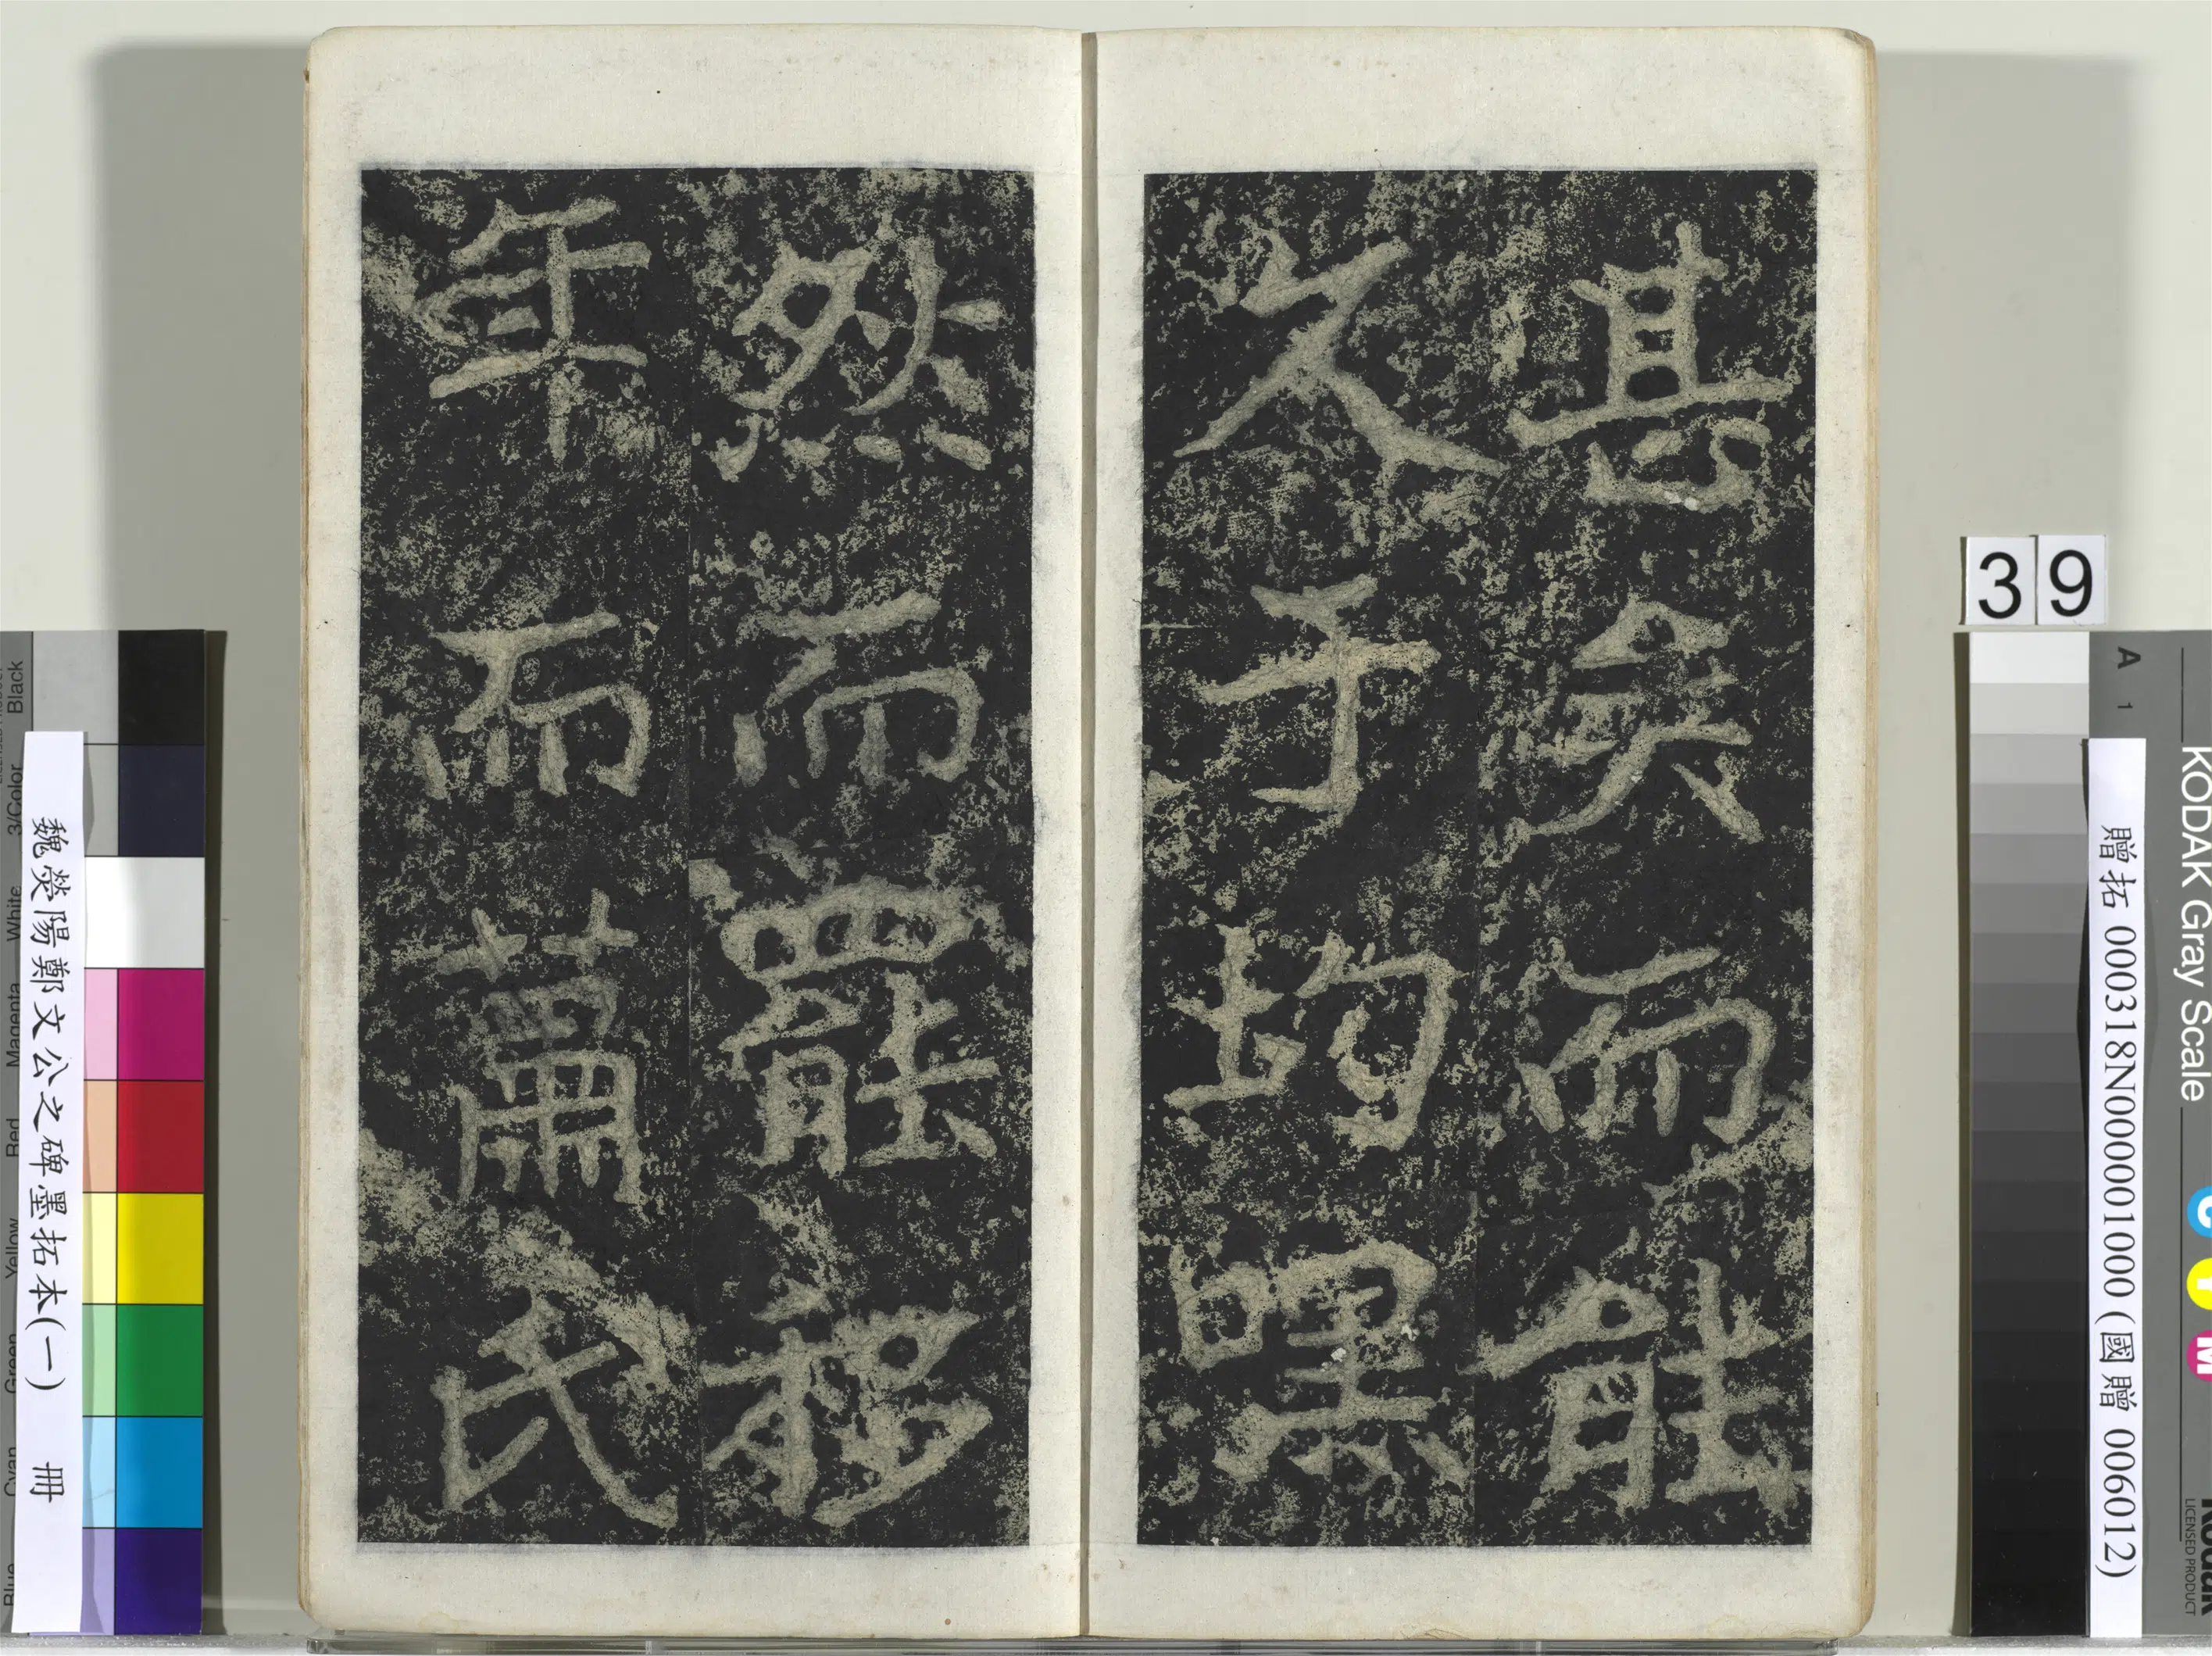 甚矣而能
久乎均嘿
然而罷移
年而蕭氏
39
A 1
KODAK Gray Scale
C Y M
Kodak
LICENSED PRODUCT
贈拓 000318N000001000 (國贈 006012)
魏熒陽鄭文公之碑墨拓本(一) 冊
Blue Cyan Green Yellow Red Magenta White 3/Color Black